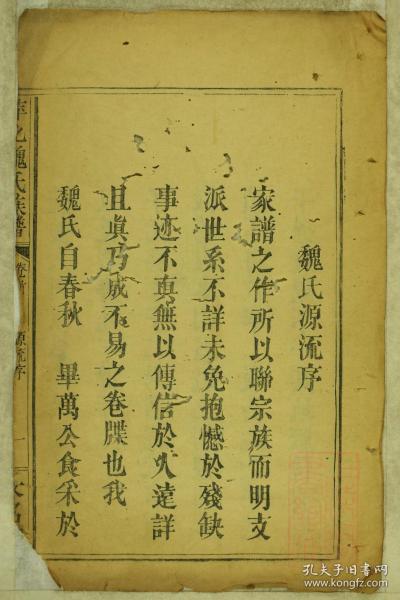 魏氏源流序
家譜之作所以聯宗族而明支
派世系不詳未免抱憾於殘缺
事迹不真無以傳信於久遠詳
且真乃成不易之卷牒也我
魏氏自春秋 畢萬公食采於
魏氏族譜
源流序
一
孔夫子旧书网
www.kongfz.com